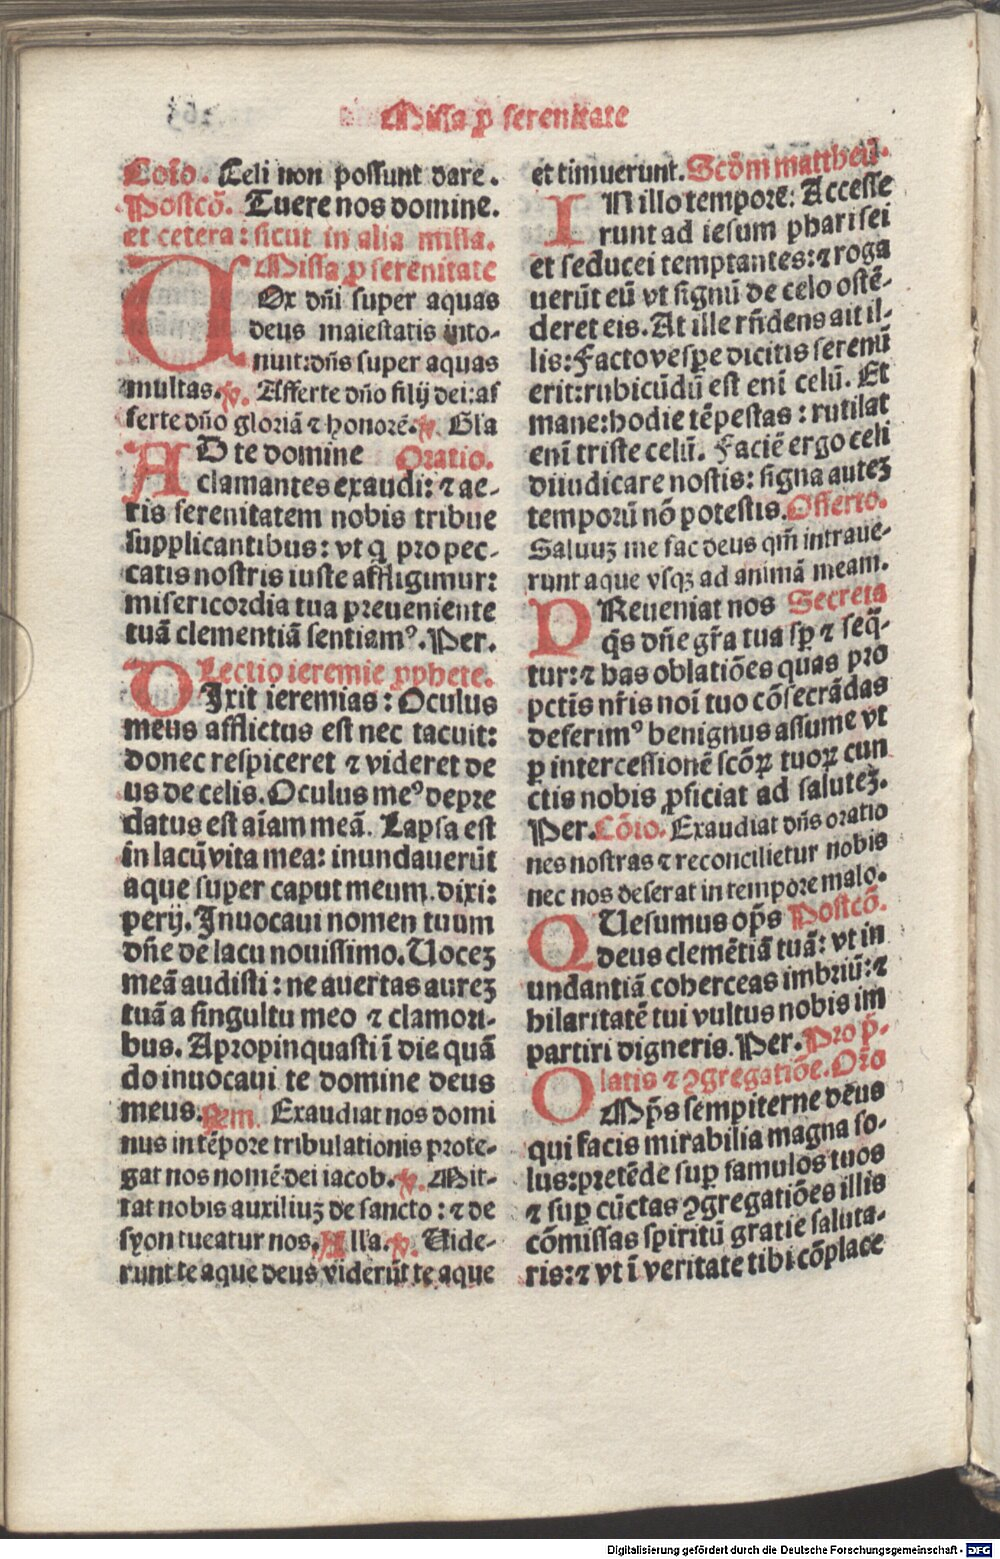 Missa ꝓ serenitate
Cōio. Celi non possunt dare.
Postcō. Tuere nos domine.
et cetera: sicut in alia missa.
Missa ꝓ serenitate
VOx dn̄i super aquas
deus maiestatis into-
nuit: dn̄s super aquas
multas. ꝟ. Afferte dn̄o filij dei: af
ferte dn̄o gloriā ⁊ honorē. ꝟ. Gl'a
AD te domine Oratio.
clamantes exaudi: ⁊ ae-
ris serenitatem nobis tribue
supplicantibus: vt q̄ pro pec-
catis nostris iuste affligimur:
misericordia tua preueniente
tuā clementiā sentiamꝰ. Per.
Lectio ieremie ꝓphete.
DIxit ieremias: Oculus
meus afflictus est nec tacuit:
donec respiceret ⁊ videret de
us de celis. Oculus meꝰ depre
datus est aīam meā. Lapsa est
in lacū vita mea: inundauerūt
aque super caput meum. dixi:
perij. Inuocaui nomen tuum
dn̄e de lacu nouissimo. Uoceꝫ
meā audisti: ne auertas aureꝫ
tuā a singultu meo ⁊ clamori-
bus. Apropinquasti ī die quā
do inuocaui te domine deus
meus. Exaudiat nos domi
nus in tēpore tribulationis prote-
gat nos nomē dei iacob. ꝟ. Mit-
tat nobis auxiliuꝫ de sancto: ⁊ de
syon tueatur nos. All'a. ꝟ. Uide-
runt te aque deus viderūt te aque
et timuerunt. Scd̄m mattheū.
IN illo tempore: Accesse
runt ad iesum pharisei
et seducei temptantes: ⁊ roga
uerūt eū vt signū de celo ostē-
deret eis. At ille rn̄dens ait il-
lis: Facto vesꝑe dicitis serenū
erit: rubicūdū est enī celū. Et
mane: hodie tēpestas: rutilat
enī triste celū. Faciē ergo celi
diiudicare nostis: signa auteꝫ
temporū nō potestis. Offerto.
Saluuꝫ me fac deus qm̄ intraue-
runt aque vsqꝫ ad animā meam.
PReueniat nos Secreta
q̄s dn̄e gr̄a tua sꝑ ⁊ seq̄-
tur: ⁊ has oblatiōes quas pro
pctīs nr̄is noī tuo cōsecrādas
deferimꝰ benignus assume vt
ꝑ intercessionē scōꝝ tuoꝝ cun
ctis nobis ꝓficiat ad saluteꝫ.
Per. Cōio. Exaudiat dn̄s oratio
nes nostras ⁊ reconcilietur nobis
nec nos deserat in tempore malo.
QUesumus op̄s Postcō.
deus clemētiā tuā: vt in
undantiā coherceas imbriū: ⁊
hilaritatē tui vultus nobis im
partiri digneris. Per. Pro p̄-
latis ⁊ ꝯgregatiōe. Or̄o
OMp̄s sempiterne deus
qui facis mirabilia magna so-
lus: pretēde suꝑ famulos tuos
⁊ suꝑ cūctas ꝯgregatiōes illis
cōmissas spiritū gratie saluta-
ris: ⁊ vt ī veritate tibi cōplace
Digitalisierung gefördert durch die Deutsche Forschungsgemeinschaft - DFG